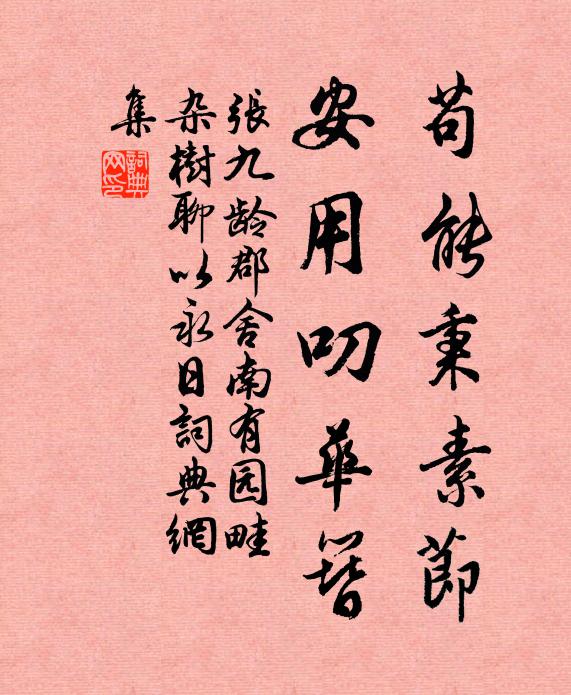 苟能秉素節
安用叨華簪
張九龄郡舍南有园畦
杂樹聊以永日詞典網
集
詞典網印